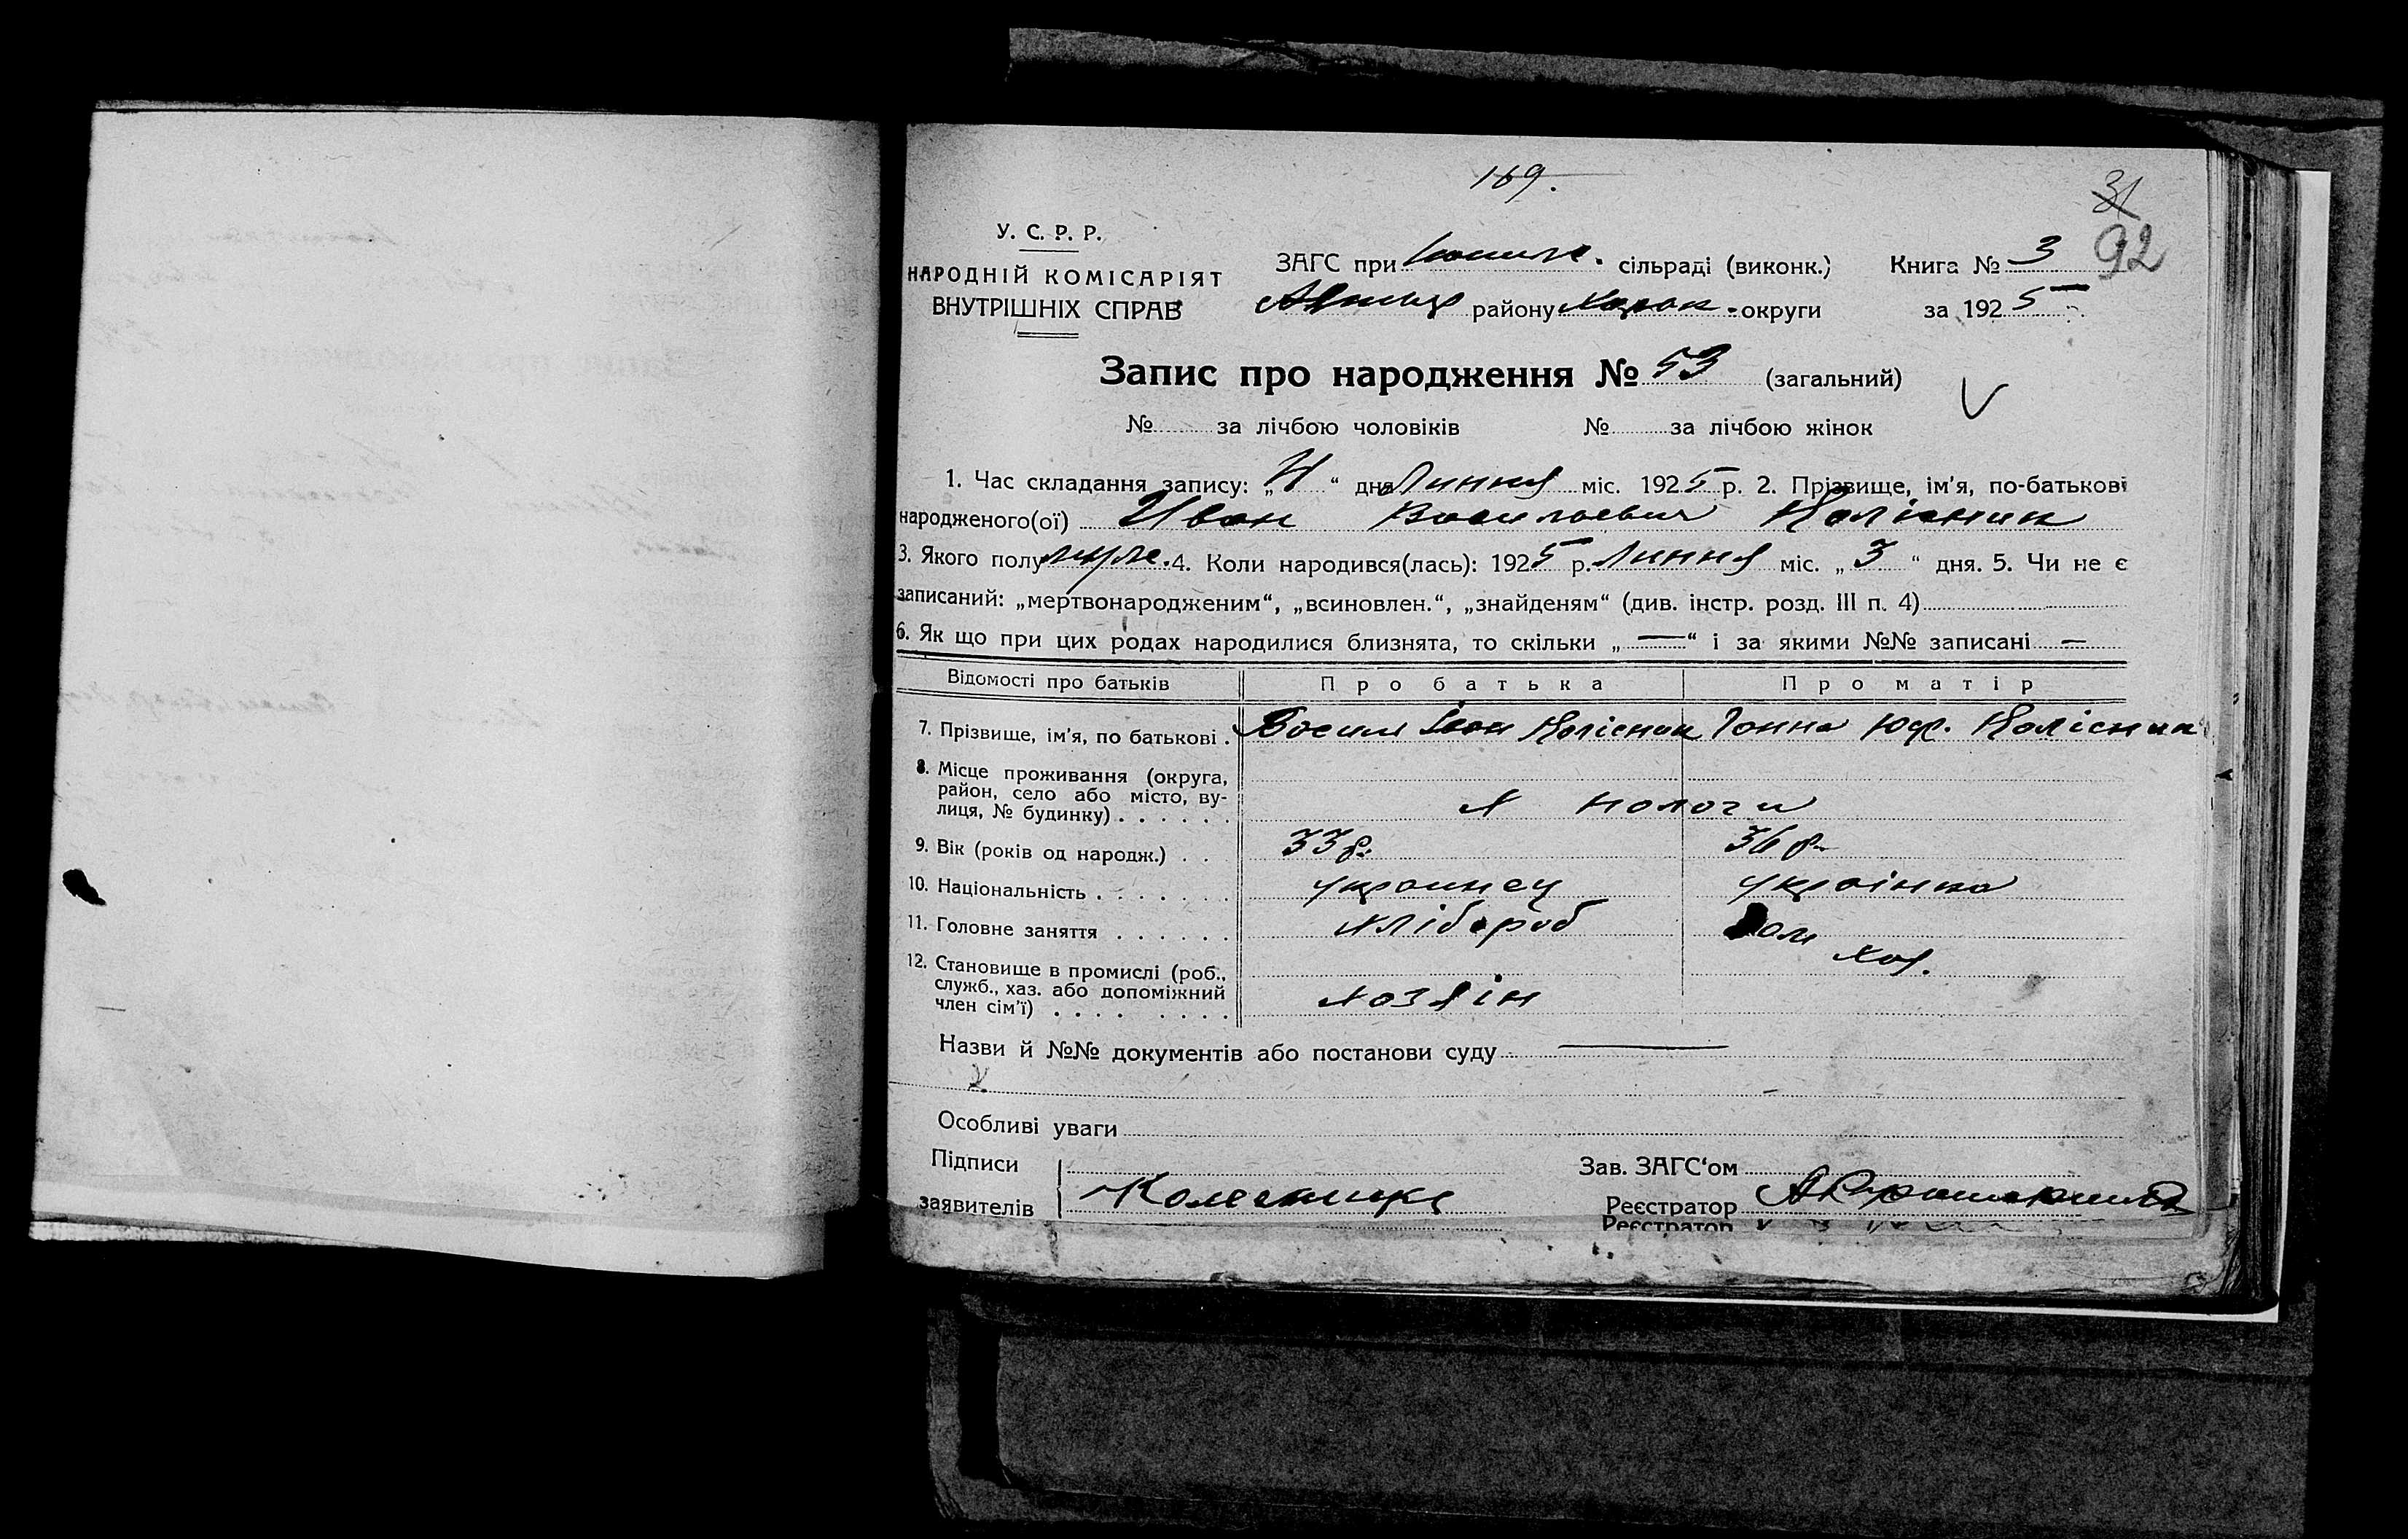 169.
31
92
У. С. Р. Р.
НАРОДНІЙ КОМІСАРІЯТ
ВНУТРІШНІХ СПРАВ
ЗАГС при сільраді (виконк.) Книга № 3
району округи за 1925 р.
Запис про народження № 53 (загальний)
№ за лічбою чоловіків № за лічбою жінок
1. Час складання запису: „ “ дня Липня міс. 1925 р. 2. Прізвище, ім’я, по-батькові
народженого(ої) Иван Васильевич Колісник
3. Якого полу муж. 4. Коли народився(лась): 1925 р. Липня міс. „3“ дня. 5. Чи не є
записаний: „мертвонародженим“, „всиновлен.“, „знайденям“ (див. інстр. розд. III п. 4)
6. Як що при цих родах народилися близнята, то скільки „—“ і за якими №№ записані —
Відомості про батьків Про батька Про матір
7. Прізвище, ім’я, по батькові . Василь Іван Колісник Ганна Юф. Колісник
8. Місце проживання (округа,
район, село або місто, ву-
лиця, № будинку) . . . . . . х
9. Вік (років од народж.) . . 33 р. 36 р.
10. Національність . . . . . . . украинец українка
11. Головне заняття . . . . . . хлібороб Дом
хоз.
12. Становище в промислі (роб.,
служб., хаз. або допоміжний
член сім’ї) . . . . . . . . хозяін
Назви й №№ документів або постанови суду —
Особливі уваги
Підписи Зав. ЗАГС‘ом
заявителів Реєстратор
Реєстратор